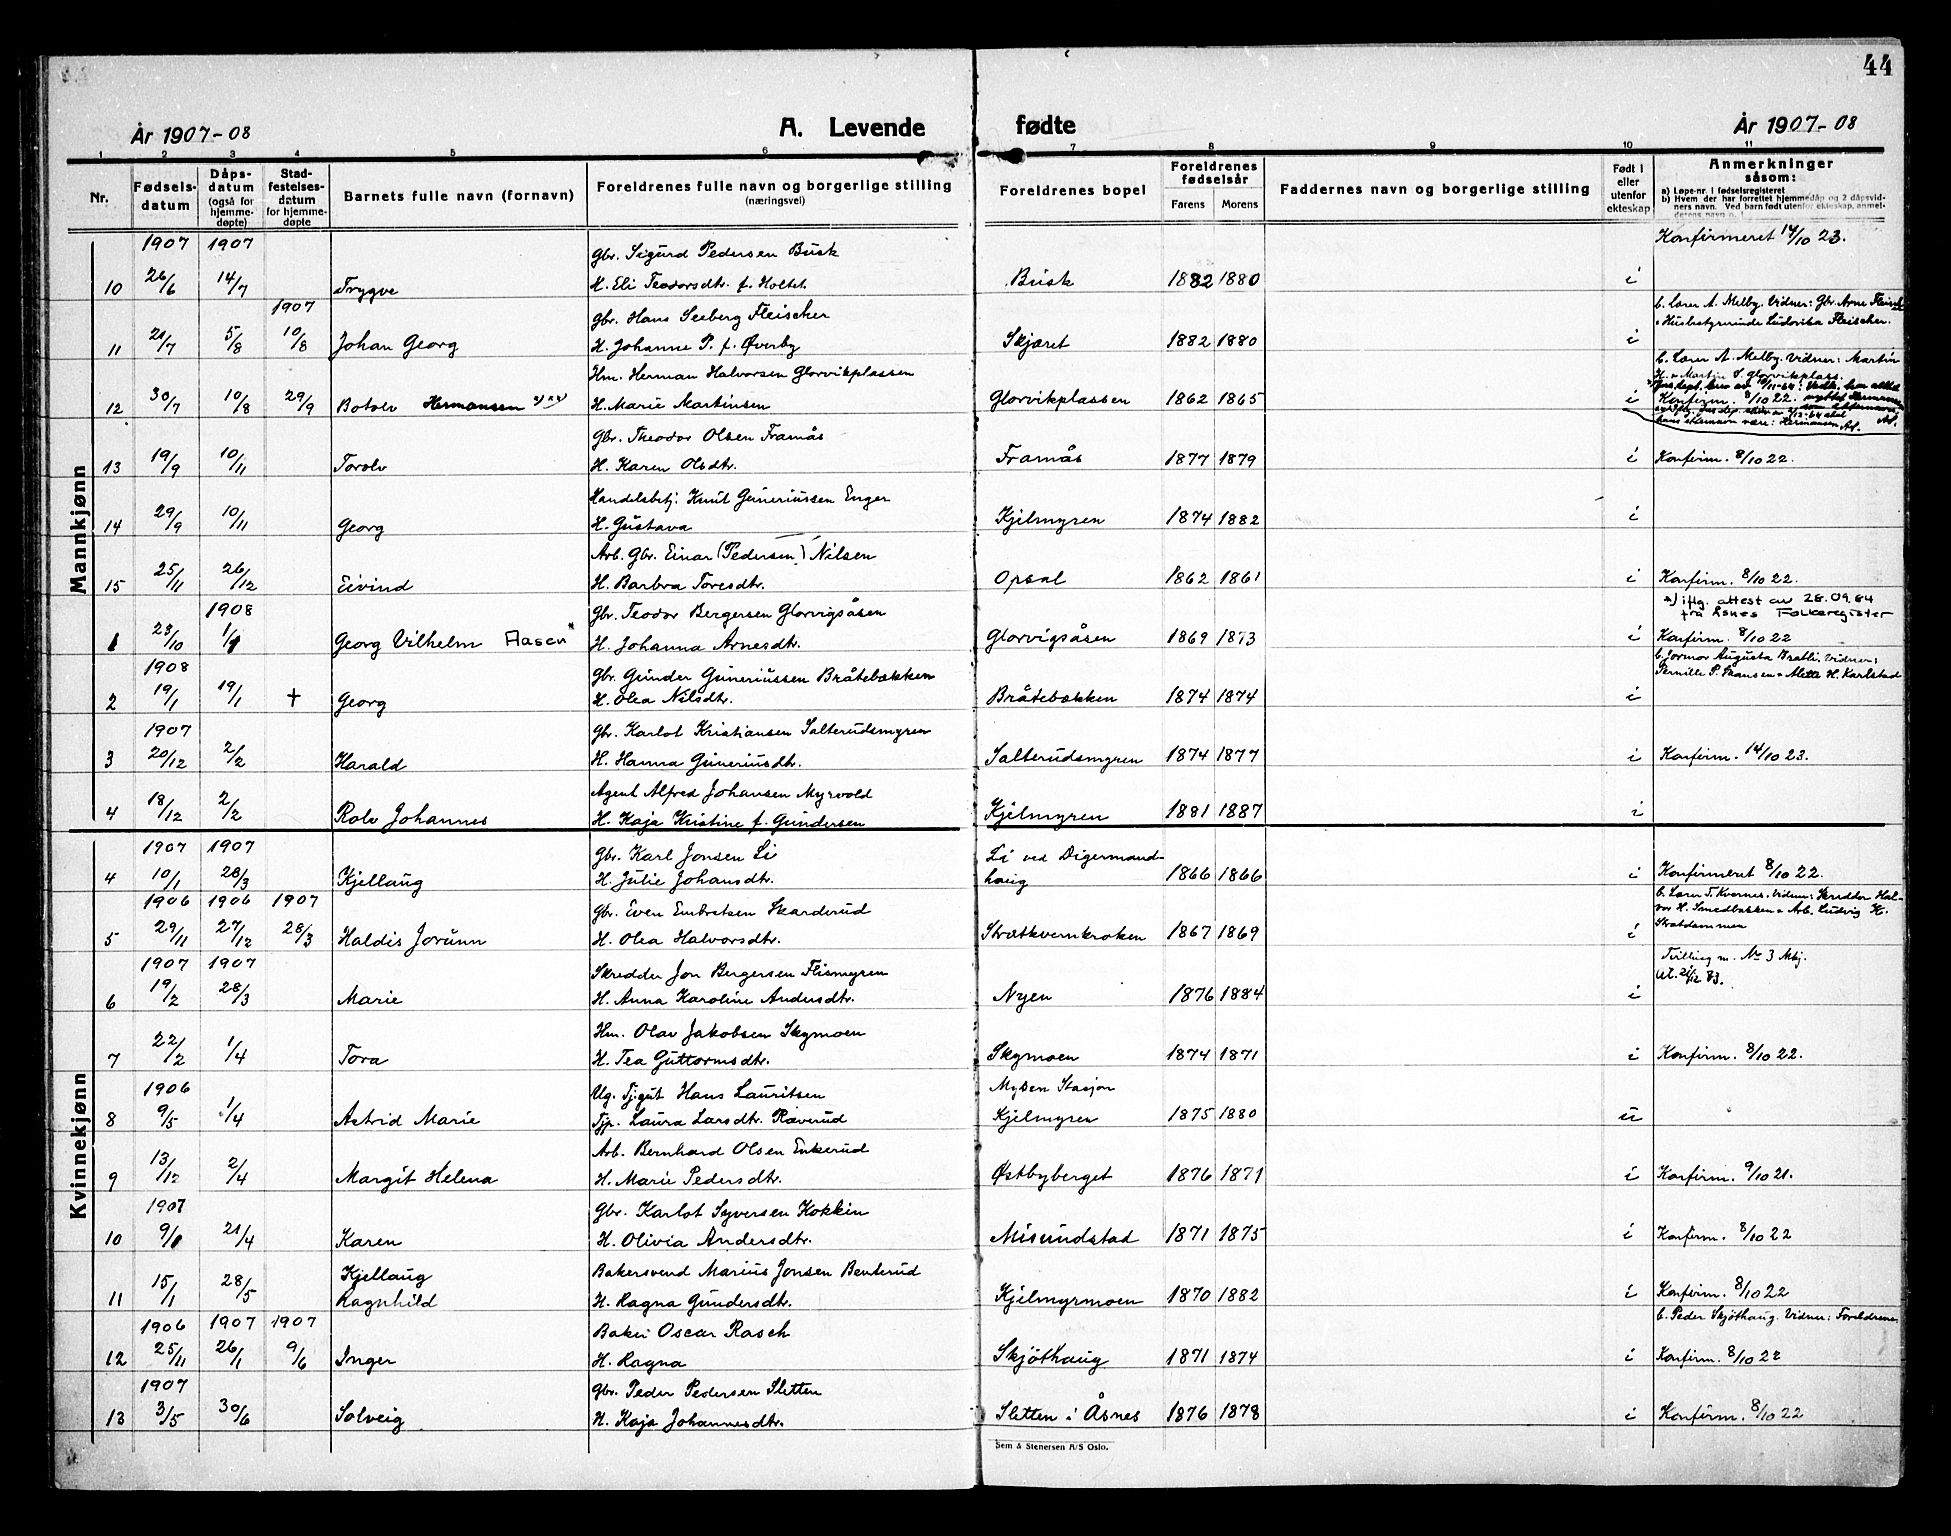 44
År 1907-08
A. Levende fødte
År 1907-08
1 2 3 4 5 6 7 8 9 10 11
Nr.
Fødsels-datum
Dåps-datum (også for hjemme-døpte)
Stad-festelses-datum for hjemme-døpte
Barnets fulle navn (fornavn)
Foreldrenes fulle navn og borgerlige stilling (næringsvei)
Foreldrenes bopel
Foreldrenes fødselsår
Farens Morens
Faddernes navn og borgerlige stilling
Født i eller utenfor ekteskap
Anmerkninger såsom:
a) Løpe-nr. i fødselsregisteret
b) Hvem der har forrettet hjemmedåp og 2 dåpsvid-
ners navn. Ved barn født utenfor ekteskap, anmel-
derens navn o. l.
Mannkjønn
1907 1907 Gbr. Sigurd Pedersen Busk Konfirmeret 14/10 23.
10 26/6 14/7 Trygve H. Eli Teodorsdtr. f. Holtet Busk 1882 1880 i
1907 Gbr. Hans Seeberg Fleischer b. Lærer A. Melby. Vidner: Gbr. Arne Fleischer
11 21/7 5/8 10/8 Johan Georg H. Johanne P. f. Øverby Skjæret 1882 1880 i Husbestyrerinde Ludovika Fleischer.
Hm. Herman Halvorsen Glorvikplassen b. Lærer A. Melby. Vidner: Martin
H. Martin S. Glorvikplass.
12 30/7 10/8 29/9 Botolv Hermansen H. Marie Martinsen Glorvikplassen 1862 1865 i Konfirm. 8/10 22.
Gbr. Theodor Olsen Framås
13 19/9 10/11 Torolv H. Karen Olsdtr. Framås 1877 1879 i Konfirm. 8/10 22.
Handelsbetj. Knut Guneriussen Enger
14 29/9 10/11 Georg H. Gustava Kjelmyren 1874 1882 i
Arb. Gbr. Einar (Pedersen) Nilsen
15 25/11 26/12 Eivind H. Barbra Toresdtr. Opsal 1862 1861 i Konfirm. 8/10 22.
1908 Gbr. Teodor Bergersen Glorvigsåsen *) iflg. attest av 28.09.84
fra Åsnes Folkeregister
1 23/10 1/1 Georg Vilhelm Aasen* H. Johanna Arnesdtr. Glorvigsåsen 1869 1873 i Konfirm. 8/10 22
1908 Gbr. Gunder Guneriussen Bråtebækken b. Jormor Augusta Bratli. Vidner:
Pernille P. Hansen Alette H. Karlstad
2 19/1 19/1 † Georg H. Olea Nilsdtr. Bråtebækken 1874 1874 i
1907 Gbr. Karlot Kristiansen Salterudsmyren
3 20/12 2/2 Harald H. Hanna Guneriusdtr. Salterudsmyren 1874 1877 i Konfirm. 14/10 23.
Agent Alfred Johansen Myrvold
4 18/12 2/2 Rolv Johannes H. Kaja Kristine f. Gundersen Kjelmyren 1881 1887 i
Kvinnekjønn
1907 1907 Gbr. Karl Jonsen Li Li ved Digermand-
4 10/1 28/3 Kjellaug H. Julie Johansdtr. haug 1866 1866 i Konfirmeret 8/10 22.
1906 1906 1907 Gbr. Even Embretsen Skarderud b. Lærer T. Kvernes. Vidner: Skredder Hal-
vor H. Smedbakken Arb. Ludvig H.
5 29/11 27/12 28/3 Haldis Jorunn H. Olea Halvorsdtr. Strætkvernkroken 1867 1869 i Strætdammen
1907 1907 Skredder Jon Bergersen Flismyren Tvilling m. No 3 Mkj.
6 19/2 28/3 Marie H. Anna Karoline Andersdtr. Nyen 1876 1884 i Ut. 21/12 83.
Hm. Olav Jakobsen Skymoen
7 22/2 1/4 Tora H. Tea Guttormsdtr. Skymoen 1874 1871 i Konfirm. 8/10 22.
1906 Ug. Tjgut Hans Lauritsen Mysen Stasjon
8 9/5 1/4 Astrid Marie Tjp. Laura Larsdtr. Råverud Kjelmyren 1875 1880 u
Arb. Bernhard Olsen Enkerud
9 13/12 2/4 Margit Helena H. Marie Pedersdtr. Østbyberget 1876 1871 i Konfirm. 9/10 21.
1907 Gbr. Karlot Syversen Kokkin
10 9/1 21/4 Karen H. Olivia Andersdtr. Misundstad 1871 1875 i Konfirm. 8/10 22
Kjellaug Bakersvend Marius Jonsen Benterud
11 15/1 28/5 Ragnhild H. Ragna Gundersdtr. Kjelmyrmoen 1870 1882 i Konfirm. 8/10 22
1906 1907 1907 Baker Oscar Rasch b. Peder Skjøthaug. Vidner: Foreldrene
12 25/11 26/1 9/6 Inger H. Ragna Skjøthaug 1871 1874 i Konfirm. 8/10 22
1907 Gbr. Peder Pedersen Sletten
13 3/5 30/6 Solveig H. Kaja Johannesdtr. Sletten i Åsnes 1876 1878 i Konfirm. 8/10 22
Sem & Stenersen A/S Oslo.